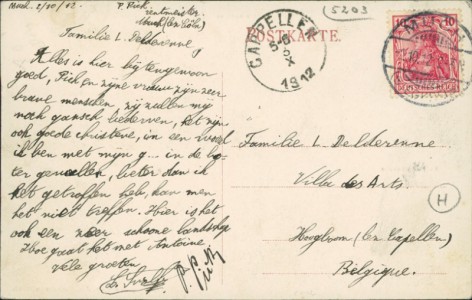 Much, 2/10/12
P. Pick
rentmeister
Much (bz Cöln)
(5203
Familie L. Delderenne
Alles is hier bijtengewoon
goed, Pick en zijne vrouw zijn zeer
brave menschen, zij zullen mij
noch gansch bederven, het zijn
ook goede christene, in een woord
ik ben met mijn g... in de bo-
ter gevallen, bieter dan ik
het getroffen heb, kan men
het niet treffen. Hier is het
ook een zeer schoone landschap
Hoe gaat het met Antoine,
Vele groeten
P. Pick
POSTKARTE
CAPPELLEN
5-6
5
X
1912
10 10
DEUTSCHES REICH
Familie L. Delderenne
Villa des Arts
Hoogboom (bz Capellen)
Belgique.
H